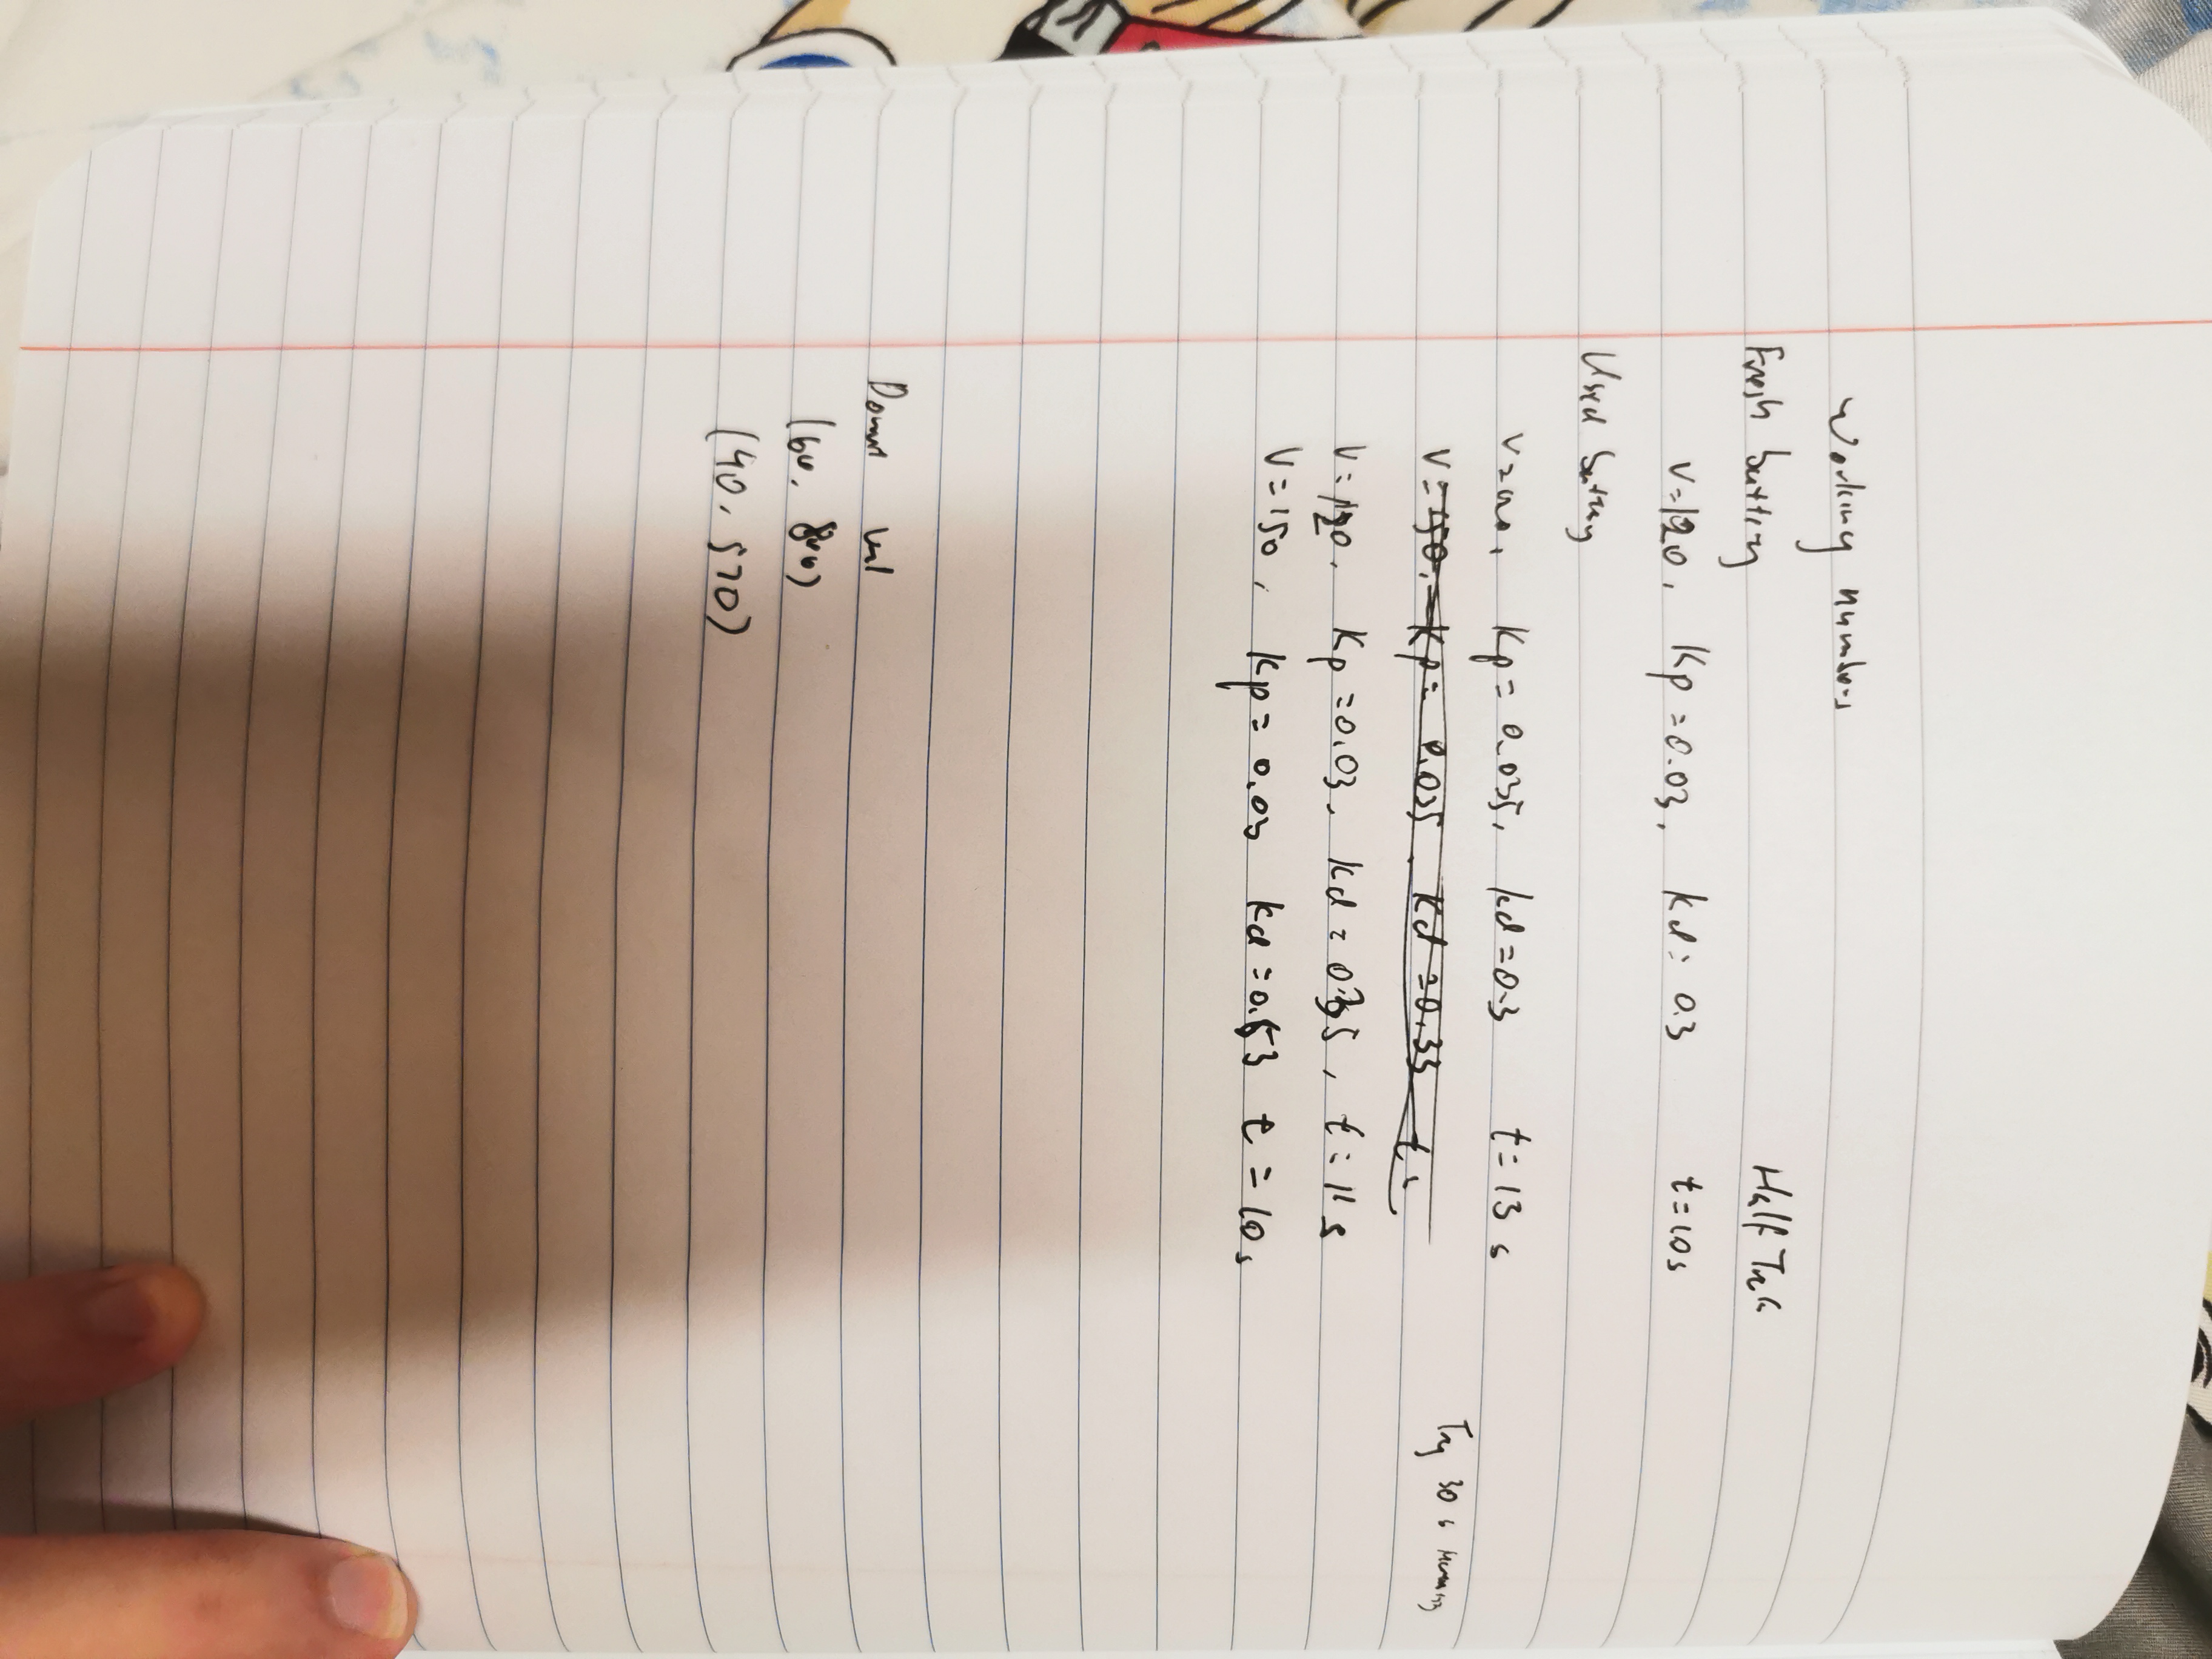 Working numbers
Fresh battery Half Trk
V=120, Kp=0.03, Kd=0.3 t=10s
Used battery
Kp=0.035, kd=0.3 t=13s
V=150, Kp=0.035, Kd=0.33 t= Try 30s
V=120, Kp=0.03, kd=0.35, t=11s
V=150, Kp=0.03 kd=0.53 t=10s
Down val
(60, 800)
(40, 570)